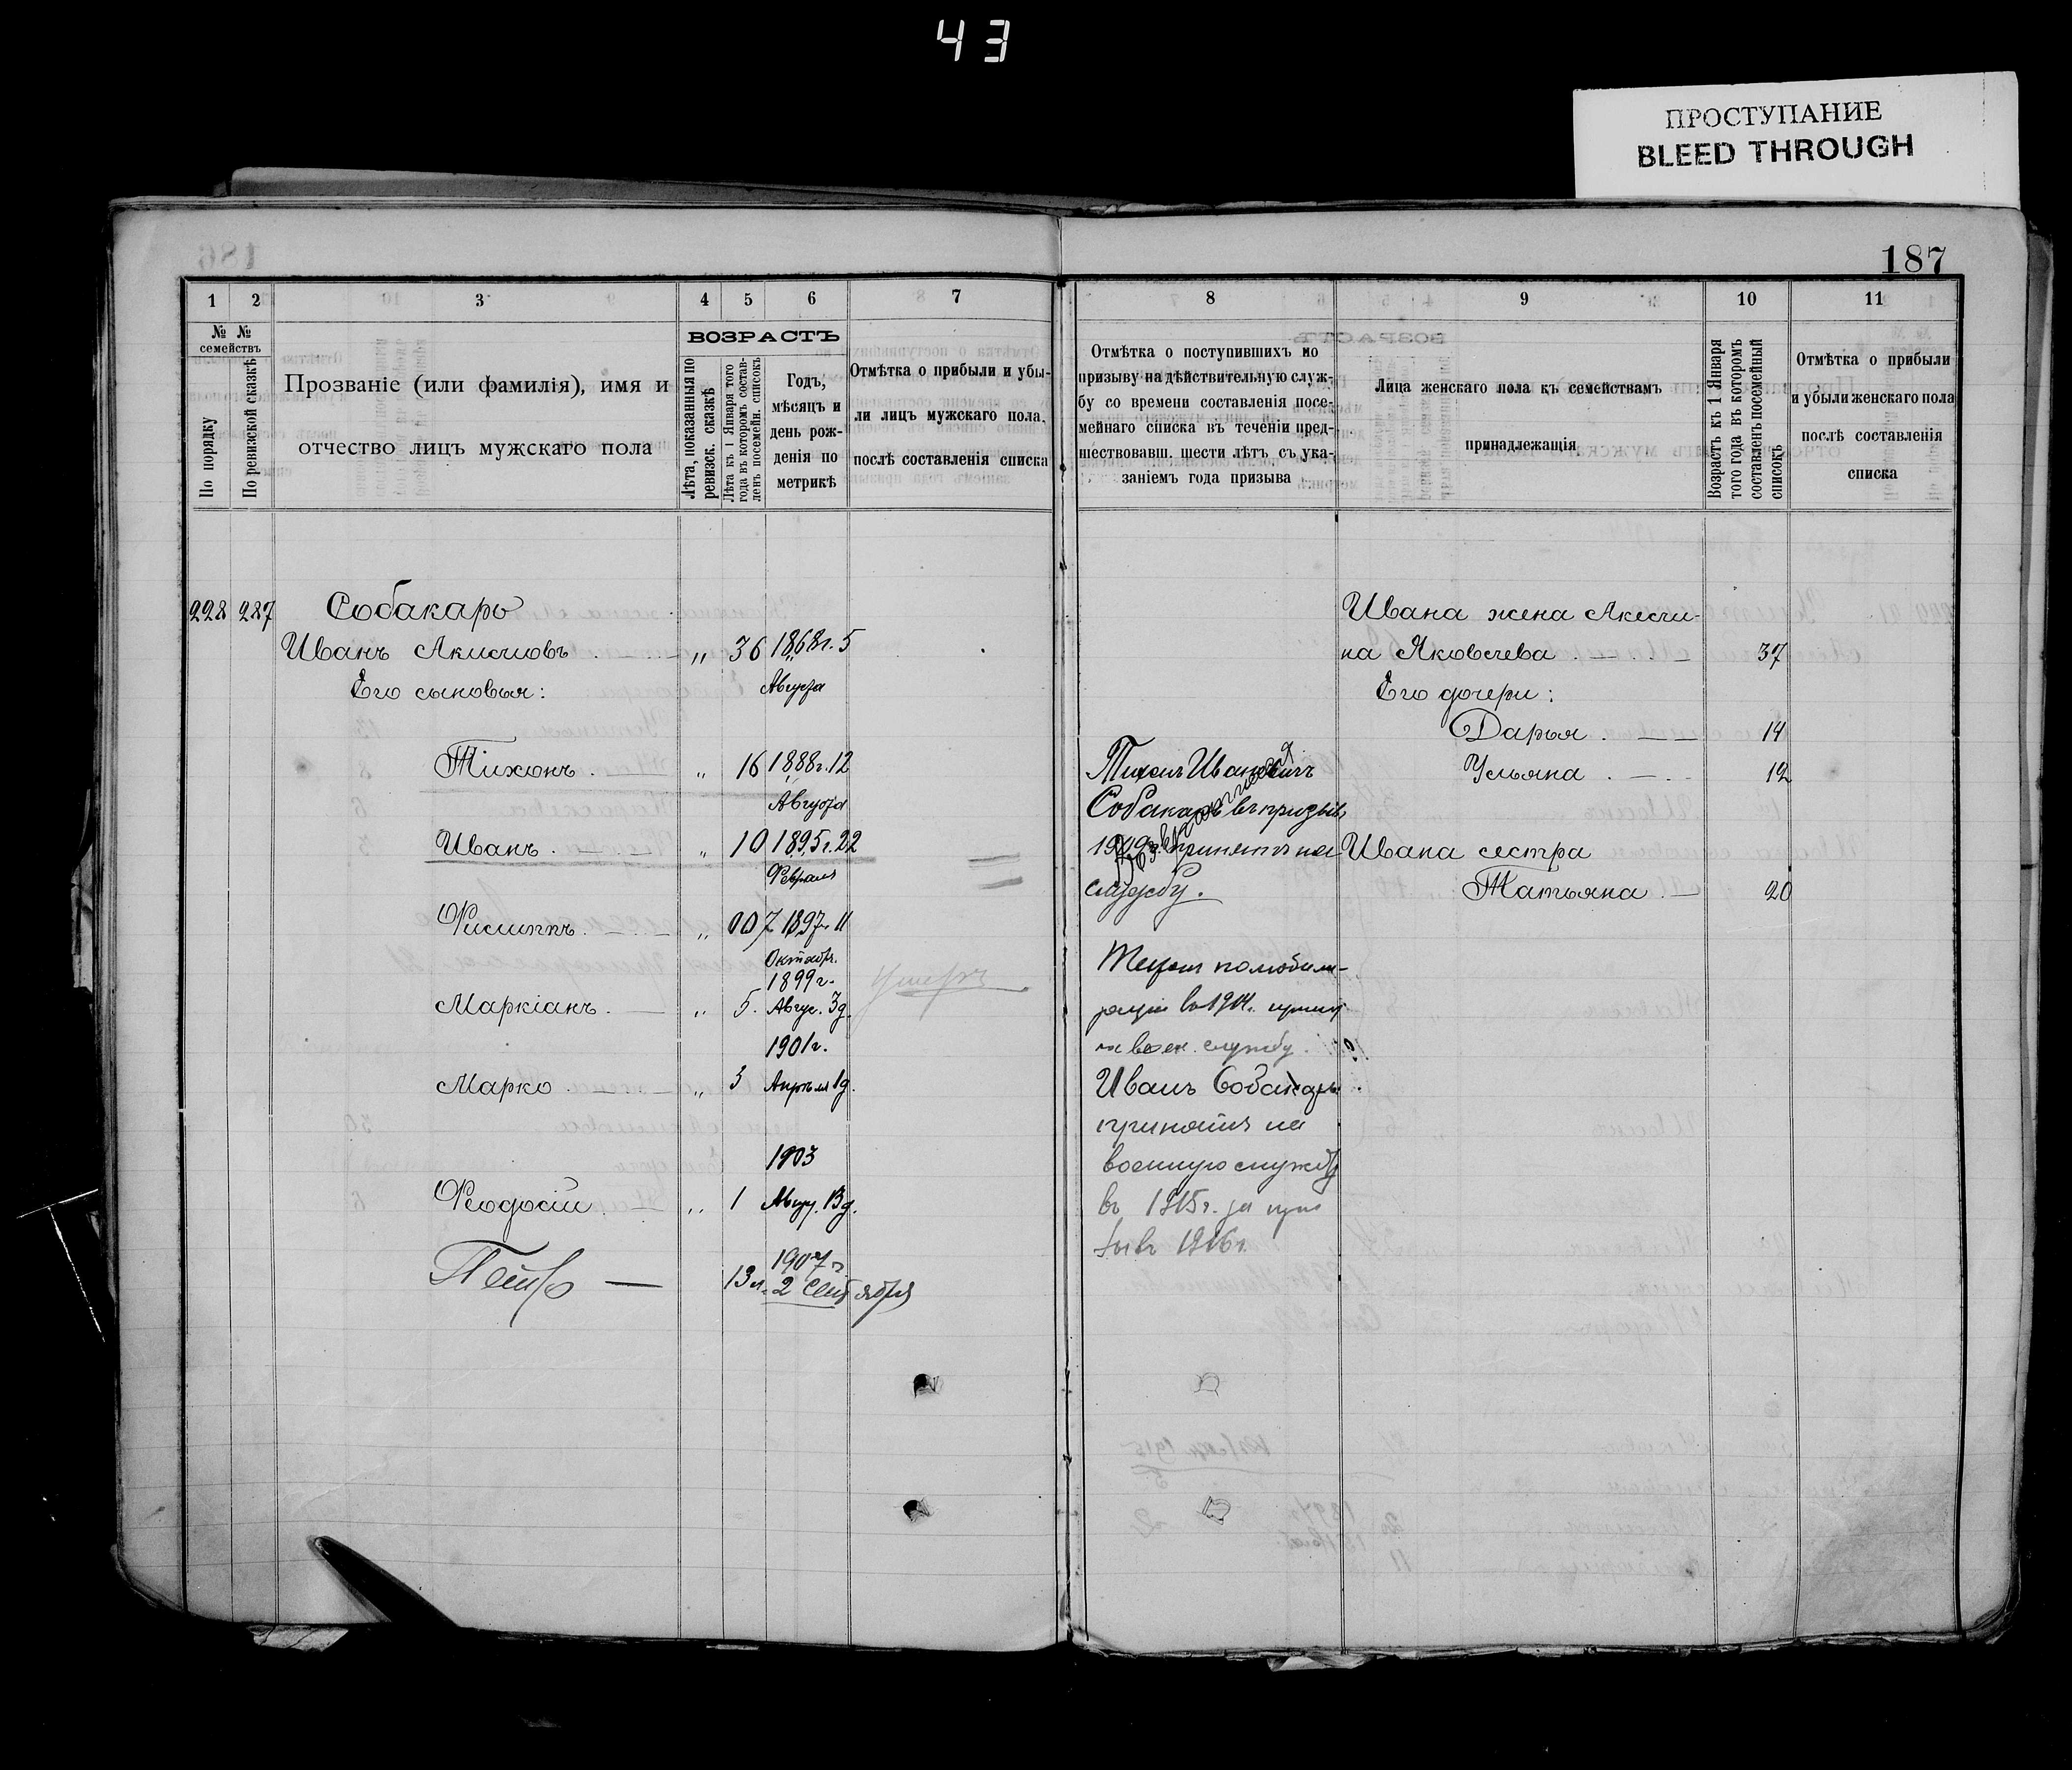 43
ПРОСТУПАНИЕ
BLEED THROUGH
186
187
1 2 3 4 5 6 7
№ № семействъ
По порядку
По ревизской сказкѣ
Прозваніе (или фамилія), имя и
отчество лицъ мужскаго пола
ВОЗРАСТЪ
Лѣта, показанныя по
ревизск. сказкѣ
Лѣта къ 1 Января того
года въ которомъ состав-
ленъ посемейн. списокъ
Годъ,
мѣсяцъ и
день рож-
денія по
метрикѣ
Отмѣтка о прибыли и убы-
ли лицъ мужскаго пола,
послѣ составленія списка
228 287 Собакарь
Иванъ Акимовъ „ 36 1868г. 5
Его сыновья: Августа
Тихонъ „ 16 1888г. 12
Августа
Иванъ „ 10 1895г. 22
Февраля
Филиппъ „ 7 1897г. 11
Октября.
1899г.
Маркіанъ „ 5. Авгус. 3д. Умеръ
1901г.
Марко „ 3 Апрѣля 1д.
1903
Феодосій „ 1 Авгу. 13д.
1907г
Петръ — 13л. 2 Сентября
8 9 10 11
Отмѣтка о поступившихъ по
призыву на дѣйствительную служ-
бу со времени составленія посе-
мейнаго списка въ теченіи пред-
шествовавш. шести лѣтъ съ ука-
заніемъ года призыва
Лица женскаго пола къ семействамъ
принадлежащія
Возрастъ къ 1 Января
того года въ которомъ
составленъ посемейный
списокъ
Отмѣтка о прибыли
и убыли женскаго пола
послѣ составленія
списка
Тихонъ Ивановичъ
Собакарь въ призывъ
1909г. принятъ на
службу.
по мобили-
зации в 1914.
на воен. службу.
Иванъ Собакарь
принятъ на
военную службу
въ 1915г. за при
зывъ 1916г.
Ивана жена Акели-
на Яковлева 37
Его дочери:
Дарья 14
Ульяна 12
Ивана сестра
Татьяна 20